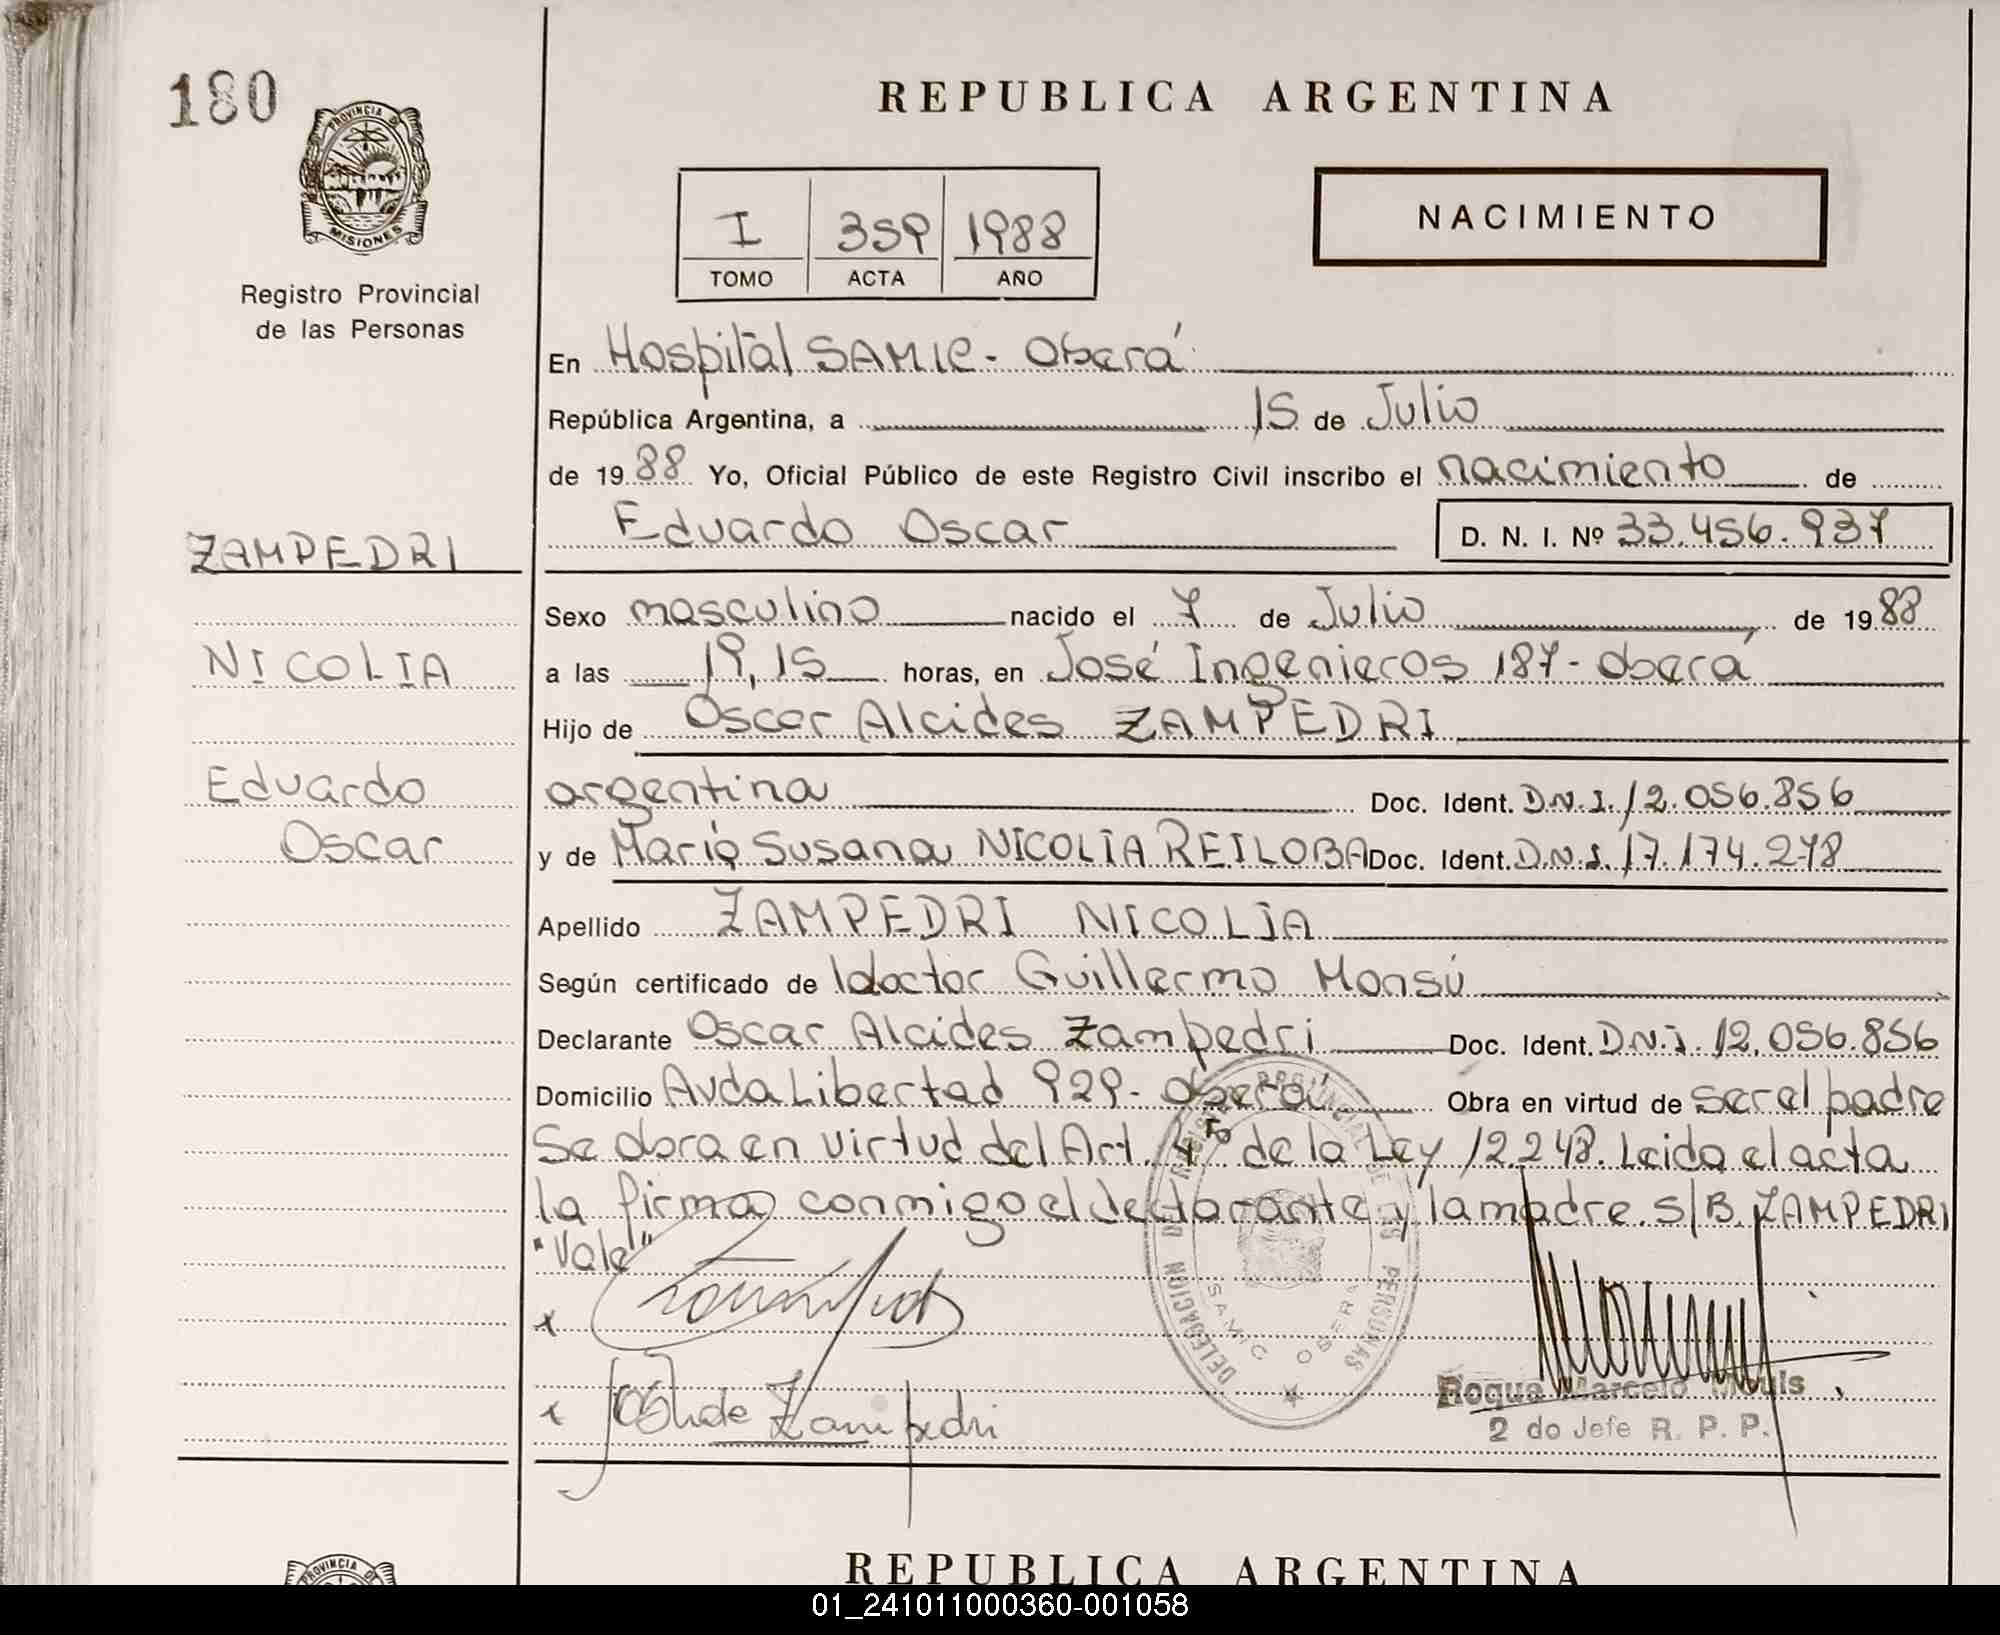 180
PROVINCIA DE
MISIONES
Registro Provincial
de las Personas
ZAMPEDRI
NICOLIA
Eduardo
Oscar
REPUBLICA ARGENTINA
I 359 1988
TOMO ACTA AÑO
NACIMIENTO
En Hospital SAMIC - Oberá
República Argentina, a 15 de Julio
de 1988 Yo, Oficial Público de este Registro Civil inscribo el nacimiento de
Eduardo Oscar D. N. I. Nº 33.456.937
Sexo masculino nacido el 7 de Julio, de 1988
a las 19,15 horas, en José Ingenieros 187 - Oberá
Hijo de Oscar Alcides ZAMPEDRI
argentina Doc. Ident. D.N.I. 12.056.856
y de María Susana NICOLIA REILOBA Doc. Ident. D.N.I. 17.174.278
Apellido ZAMPEDRI NICOLIA
Según certificado de doctor Guillermo Monsú
Declarante Oscar Alcides Zampedri Doc. Ident. D.N.I. 12.056.856
Domicilio Avda Libertad 929 - Oberá Obra en virtud de ser el padre
Se obra en virtud del Art. 4to de la Ley 12.248. Leida el acta
la firma conmigo el declarante y la madre. S/B. ZAMPEDRI
"Vale"
x
x de Zampedri
DELEGACION PROVINCIAL DE LAS PERSONAS
SAMIC OBERA
Roque Marcelo
2 do Jefe R. P. P.
PROVINCIA DE
REPUBLICA ARGENTINA
01_241011000360-001058